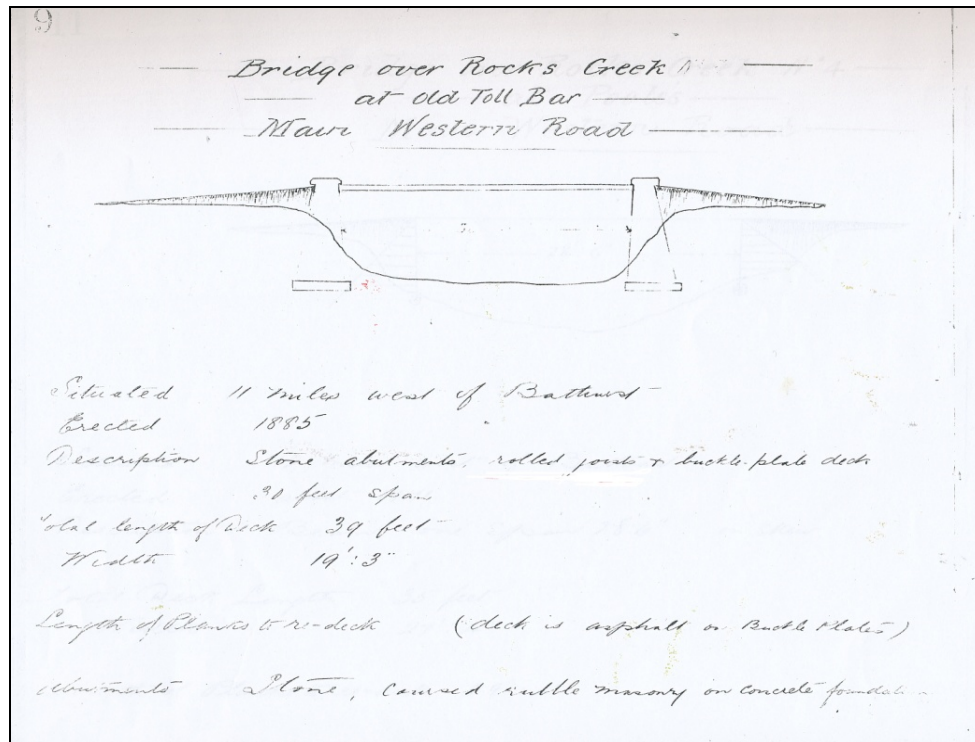 9
Bridge over Rocks Creek
at old Toll Bar
Main Western Road
Situated 11 miles west of Bathurst
Erected 1885
Description Stone abutments, rolled joists & buckle-plate deck
30 feet span
Total length of Deck 39 feet
Width 19':3"
Length of Planks to re-deck (deck is asphalt on Buckle Plates)
Abutments Stone, coursed rubble masonry on concrete foundation